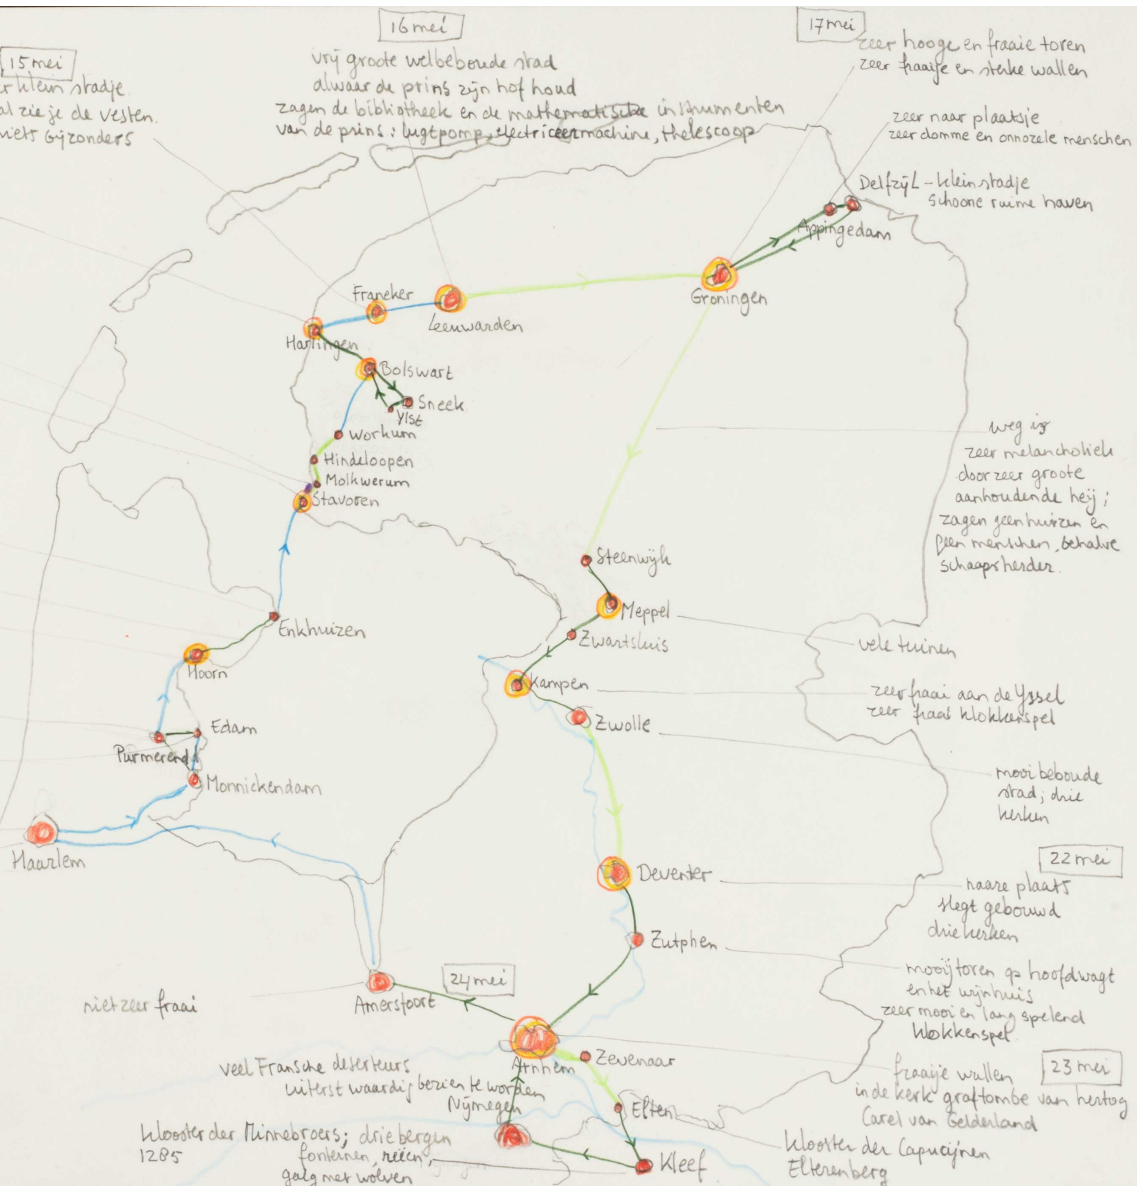 15 mei
klein stadje
al zie je de vesten.
niets bijzonders
16 mei
vrij groote welbeboude stad
alwaar de prins zijn hof houd
zagen de bibliotheek en de mathematische instrumenten
van de prins: lugtpomp, electriceermachine, thelescoop
17 mei
zeer hooge en fraaie toren
zeer fraaije en sterke wallen
zeer naar plaatsje
zeer domme en onnozele menschen
Delfzijl - klein stadje
schoone ruime haven
Appingedam
Groningen
Franeker
Leeuwarden
Harlingen
Bolswart
Sneek
Ylst
Workum
Hindeloopen
Molkwerum
Stavoren
weg is
zeer melancholiek
door zeer groote
aanhoudende heij;
zagen geen huizen en
geen menschen, behalve
schaapsherder.
Steenwijk
Meppel
Zwartsluis
Enkhuizen
vele tuinen
Hoorn
Kampen
zeer fraai aan de Yssel
zeer fraai klokkenspel
Zwolle
Edam
Purmerend
Monnickendam
mooi beboude
stad; drie
kerken
Haarlem
22 mei
Deventer
naare plaats
slegt gebouwd
drie kerken
Zutphen
mooij toren op hoofdwagt
en het wijnhuis
zeer mooi en lang spelend
klokkenspel
24 mei
niet zeer fraai
Amersfoort
Arnhem
Zevenaar
23 mei
fraaije wallen
in de kerk graftombe van hertog
Carel van Gelderland
veel Fransche deserteurs
uiterst waardij bezien te worden
Nijmegen
Elten
Klooster der Minnebroers; drie bergen
1285
fonteinen, reëen,
galg met wolven
Kleef
Klooster der Capucijnen
Elterenberg